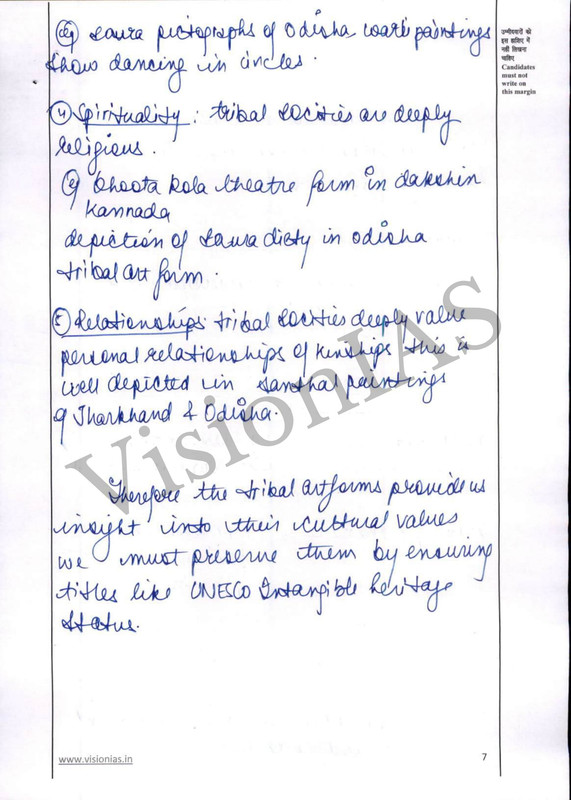 eg Saura pictographs of Odisha warli paintings
show dancing in circles.
④ Spirituality: tribal socities are deeply
religious.
eg bhoota kola theatre form in dakshin
kannada
depiction of Saura diety in odisha
tribal art form.
⑤ Relationships: tribal socities deeply value
personal relationships of kinships this is
well depicted in santhal paintings
of Jharkhand & Odisha.
Therefore the tribal artforms provide us
insight into their cultural values
we must preserve them by ensuring
titles like UNESCO Intangible heritage
status.
उम्मीदवारों को
इस हाशिए में
नहीं लिखना
चाहिए
Candidates
must not
write on
this margin
VisionIAS
www.visionias.in
7